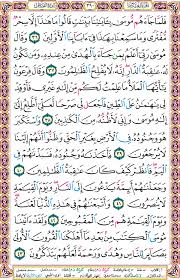 ٣٩٠
فَلَمَّا جَآءَهُم مُّوسَىٰ بِـَٔايَٰتِنَا بَيِّنَٰتٍ قَالُوا۟ مَا هَٰذَآ إِلَّا سِحْرٌ
مُّفْتَرًى وَمَا سَمِعْنَا بِهَٰذَا فِىٓ ءَابَآئِنَا ٱلْأَوَّلِينَ ٣٦ وَقَالَ
مُوسَىٰ رَبِّىٓ أَعْلَمُ بِمَن جَآءَ بِٱلْهُدَىٰ مِنْ عِندِهِۦ وَمَن تَكُونُ
لَهُۥ عَٰقِبَةُ ٱلدَّارِ إِنَّهُۥ لَا يُفْلِحُ ٱلظَّٰلِمُونَ ٣٧ وَقَالَ فِرْعَوْنُ
يَٰٓأَيُّهَا ٱلْمَلَأُ مَا عَلِمْتُ لَكُم مِّنْ إِلَٰهٍ غَيْرِى فَأَوْقِدْ
لِى يَٰهَٰمَٰنُ عَلَى ٱلطِّينِ فَٱجْعَل لِّى صَرْحًا لَّعَلِّىٓ أَطَّلِعُ إِلَىٰٓ إِلَٰهِ
مُوسَىٰ وَإِنِّى لَأَظُنُّهُۥ مِنَ ٱلْكَٰذِبِينَ ٣٨ وَٱسْتَكْبَرَ
هُوَ وَجُنُودُهُۥ فِى ٱلْأَرْضِ بِغَيْرِ ٱلْحَقِّ وَظَنُّوٓا۟ أَنَّهُمْ إِلَيْنَا
لَا يُرْجَعُونَ ٣٩ فَأَخَذْنَٰهُ وَجُنُودَهُۥ فَنَبَذْنَٰهُمْ فِى
ٱلْيَمِّ فَٱنظُرْ كَيْفَ كَانَ عَٰقِبَةُ ٱلظَّٰلِمِينَ ٤٠
وَجَعَلْنَٰهُمْ أَئِمَّةً يَدْعُونَ إِلَى ٱلنَّارِ وَيَوْمَ ٱلْقِيَٰمَةِ
لَا يُنصَرُونَ ٤١ وَأَتْبَعْنَٰهُمْ فِى هَٰذِهِ ٱلدُّنْيَا لَعْنَةً
وَيَوْمَ ٱلْقِيَٰمَةِ هُم مِّنَ ٱلْمَقْبُوحِينَ ٤٢ وَلَقَدْ ءَاتَيْنَا
مُوسَى ٱلْكِتَٰبَ مِنۢ بَعْدِ مَآ أَهْلَكْنَا ٱلْقُرُونَ ٱلْأُولَىٰ
بَصَآئِرَ لِلنَّاسِ وَهُدًى وَرَحْمَةً لَّعَلَّهُمْ يَتَذَكَّرُونَ ٤٣